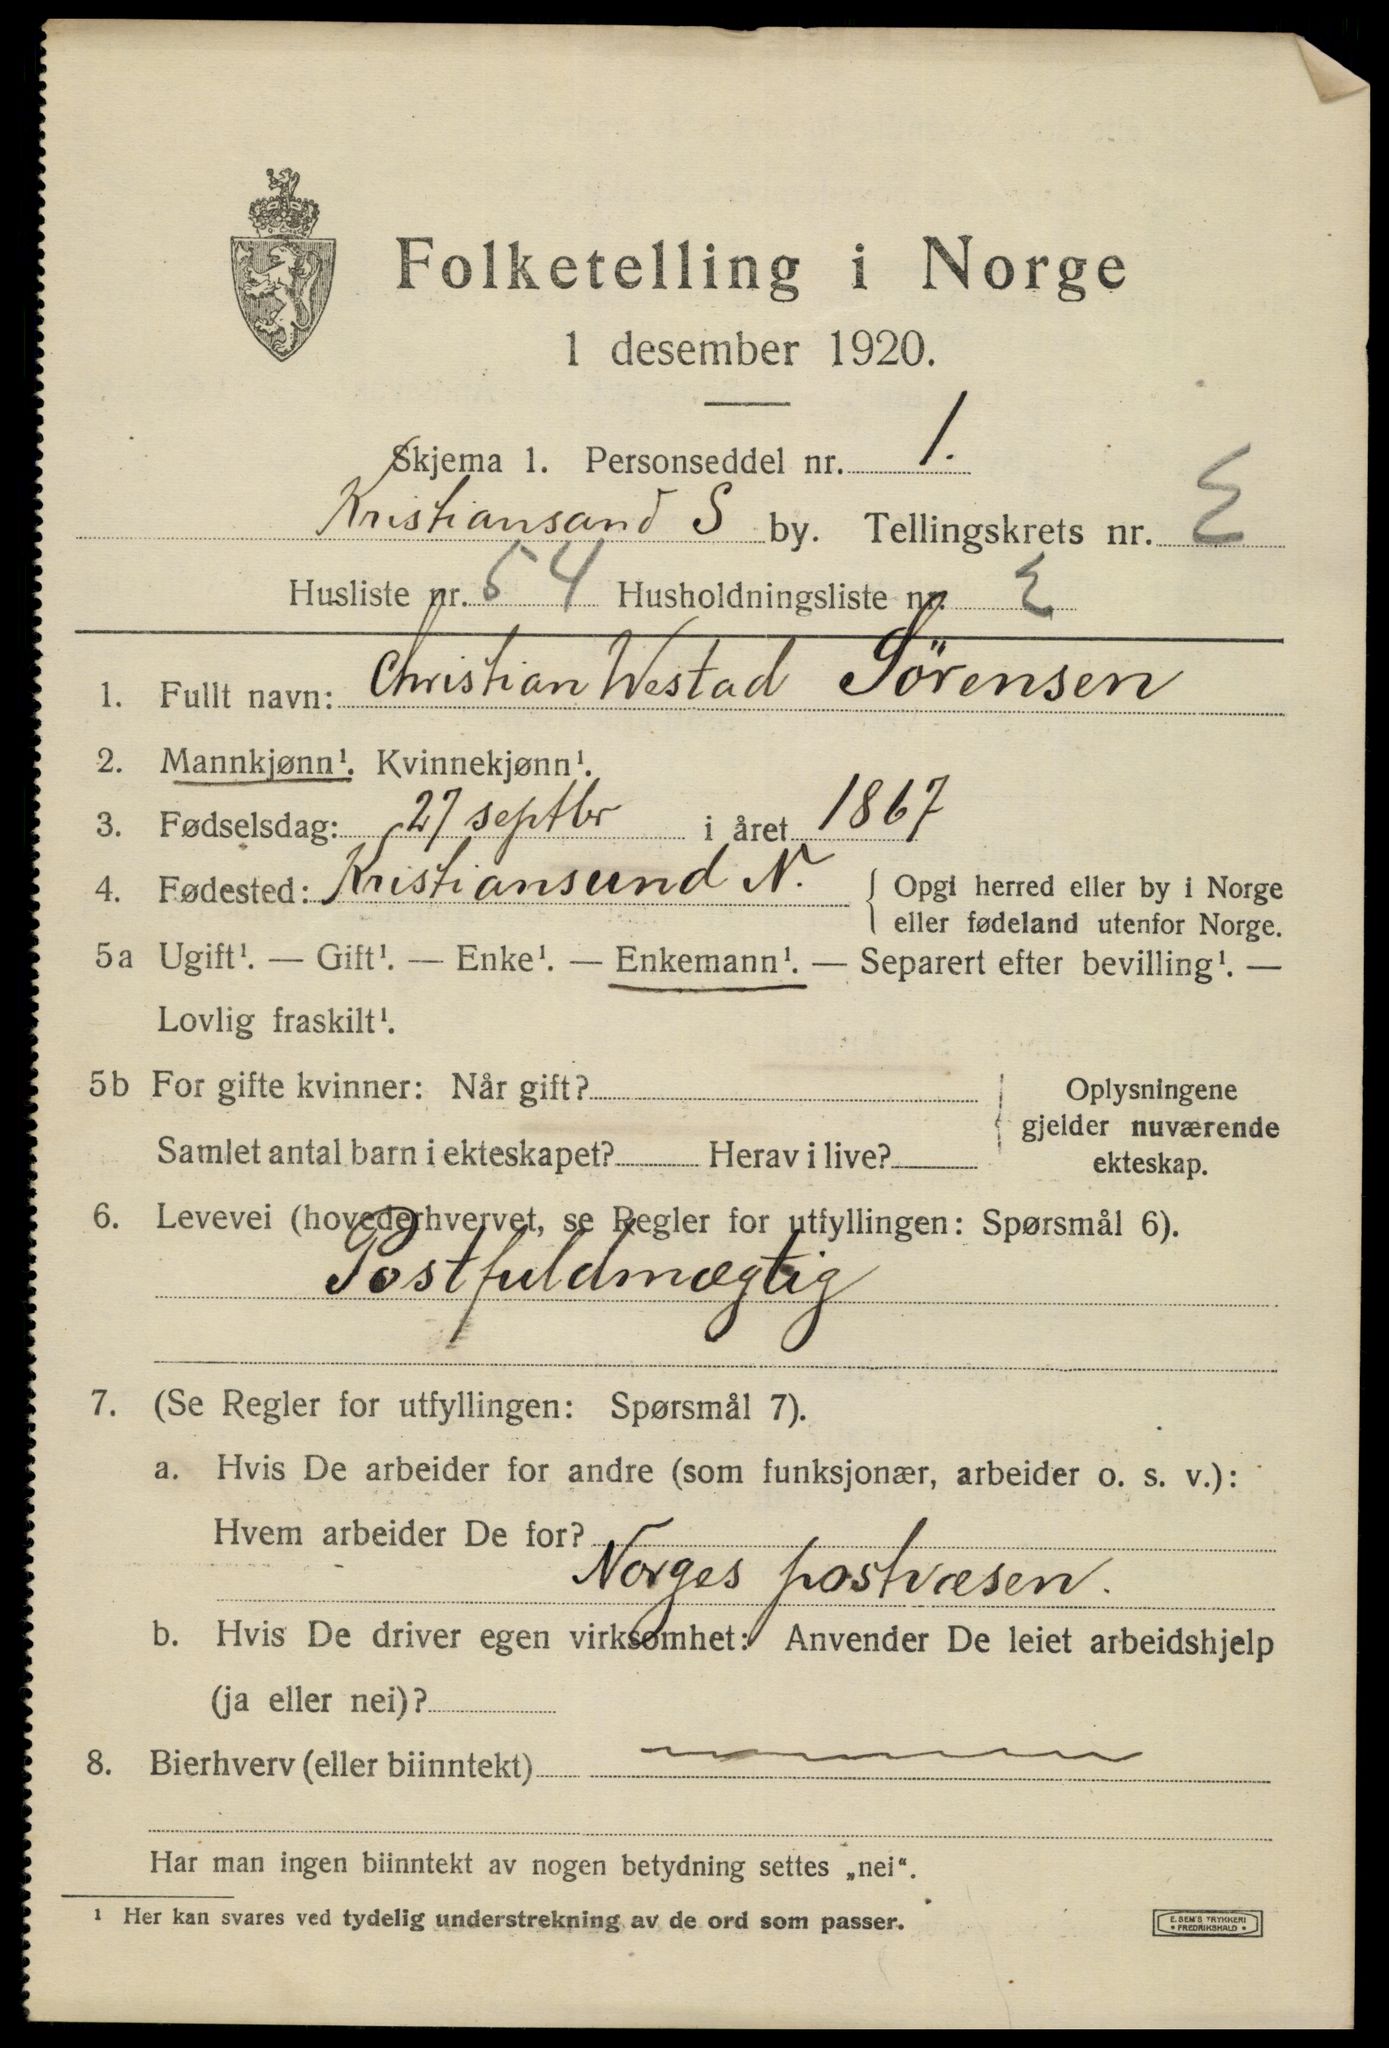 Folketelling i Norge
1 desember 1920.
Skjema 1. Personseddel nr. 1.
Kristiansand S by. Tellingskrets nr.
Husliste nr. 54 Husholdningsliste nr.
1. Fullt navn: Christian Westad Sörensen
2. Mannkjønn¹. Kvinnekjønn¹.
3. Fødselsdag: 27 septbr i året 1867
4. Fødested: Kristiansund N. { Opgi herred eller by i Norge
eller fødeland utenfor Norge.
5a Ugift¹. — Gift¹. — Enke¹. — Enkemann¹. — Separert efter bevilling¹. —
Lovlig fraskilt¹.
5b For gifte kvinner: Når gift?
Samlet antal barn i ekteskapet? Herav i live?
Oplysningene
gjelder nuværende
ekteskap.
6. Levevei (hovederhvervet, se Regler for utfyllingen: Spørsmål 6).
Postfuldmægtig
7. (Se Regler for utfyllingen: Spørsmål 7).
a. Hvis De arbeider for andre (som funksjonær, arbeider o. s. v.):
Hvem arbeider De for?
Norges postvæsen.
b. Hvis De driver egen virksomhet: Anvender De leiet arbeidshjelp
(ja eller nei)?
8. Bierhverv (eller biinntekt)
Har man ingen biinntekt av nogen betydning settes „nei“.
¹ Her kan svares ved tydelig understrekning av de ord som passer.
E. SEM'S TRYKKERI
• FREDRIKSHALD •